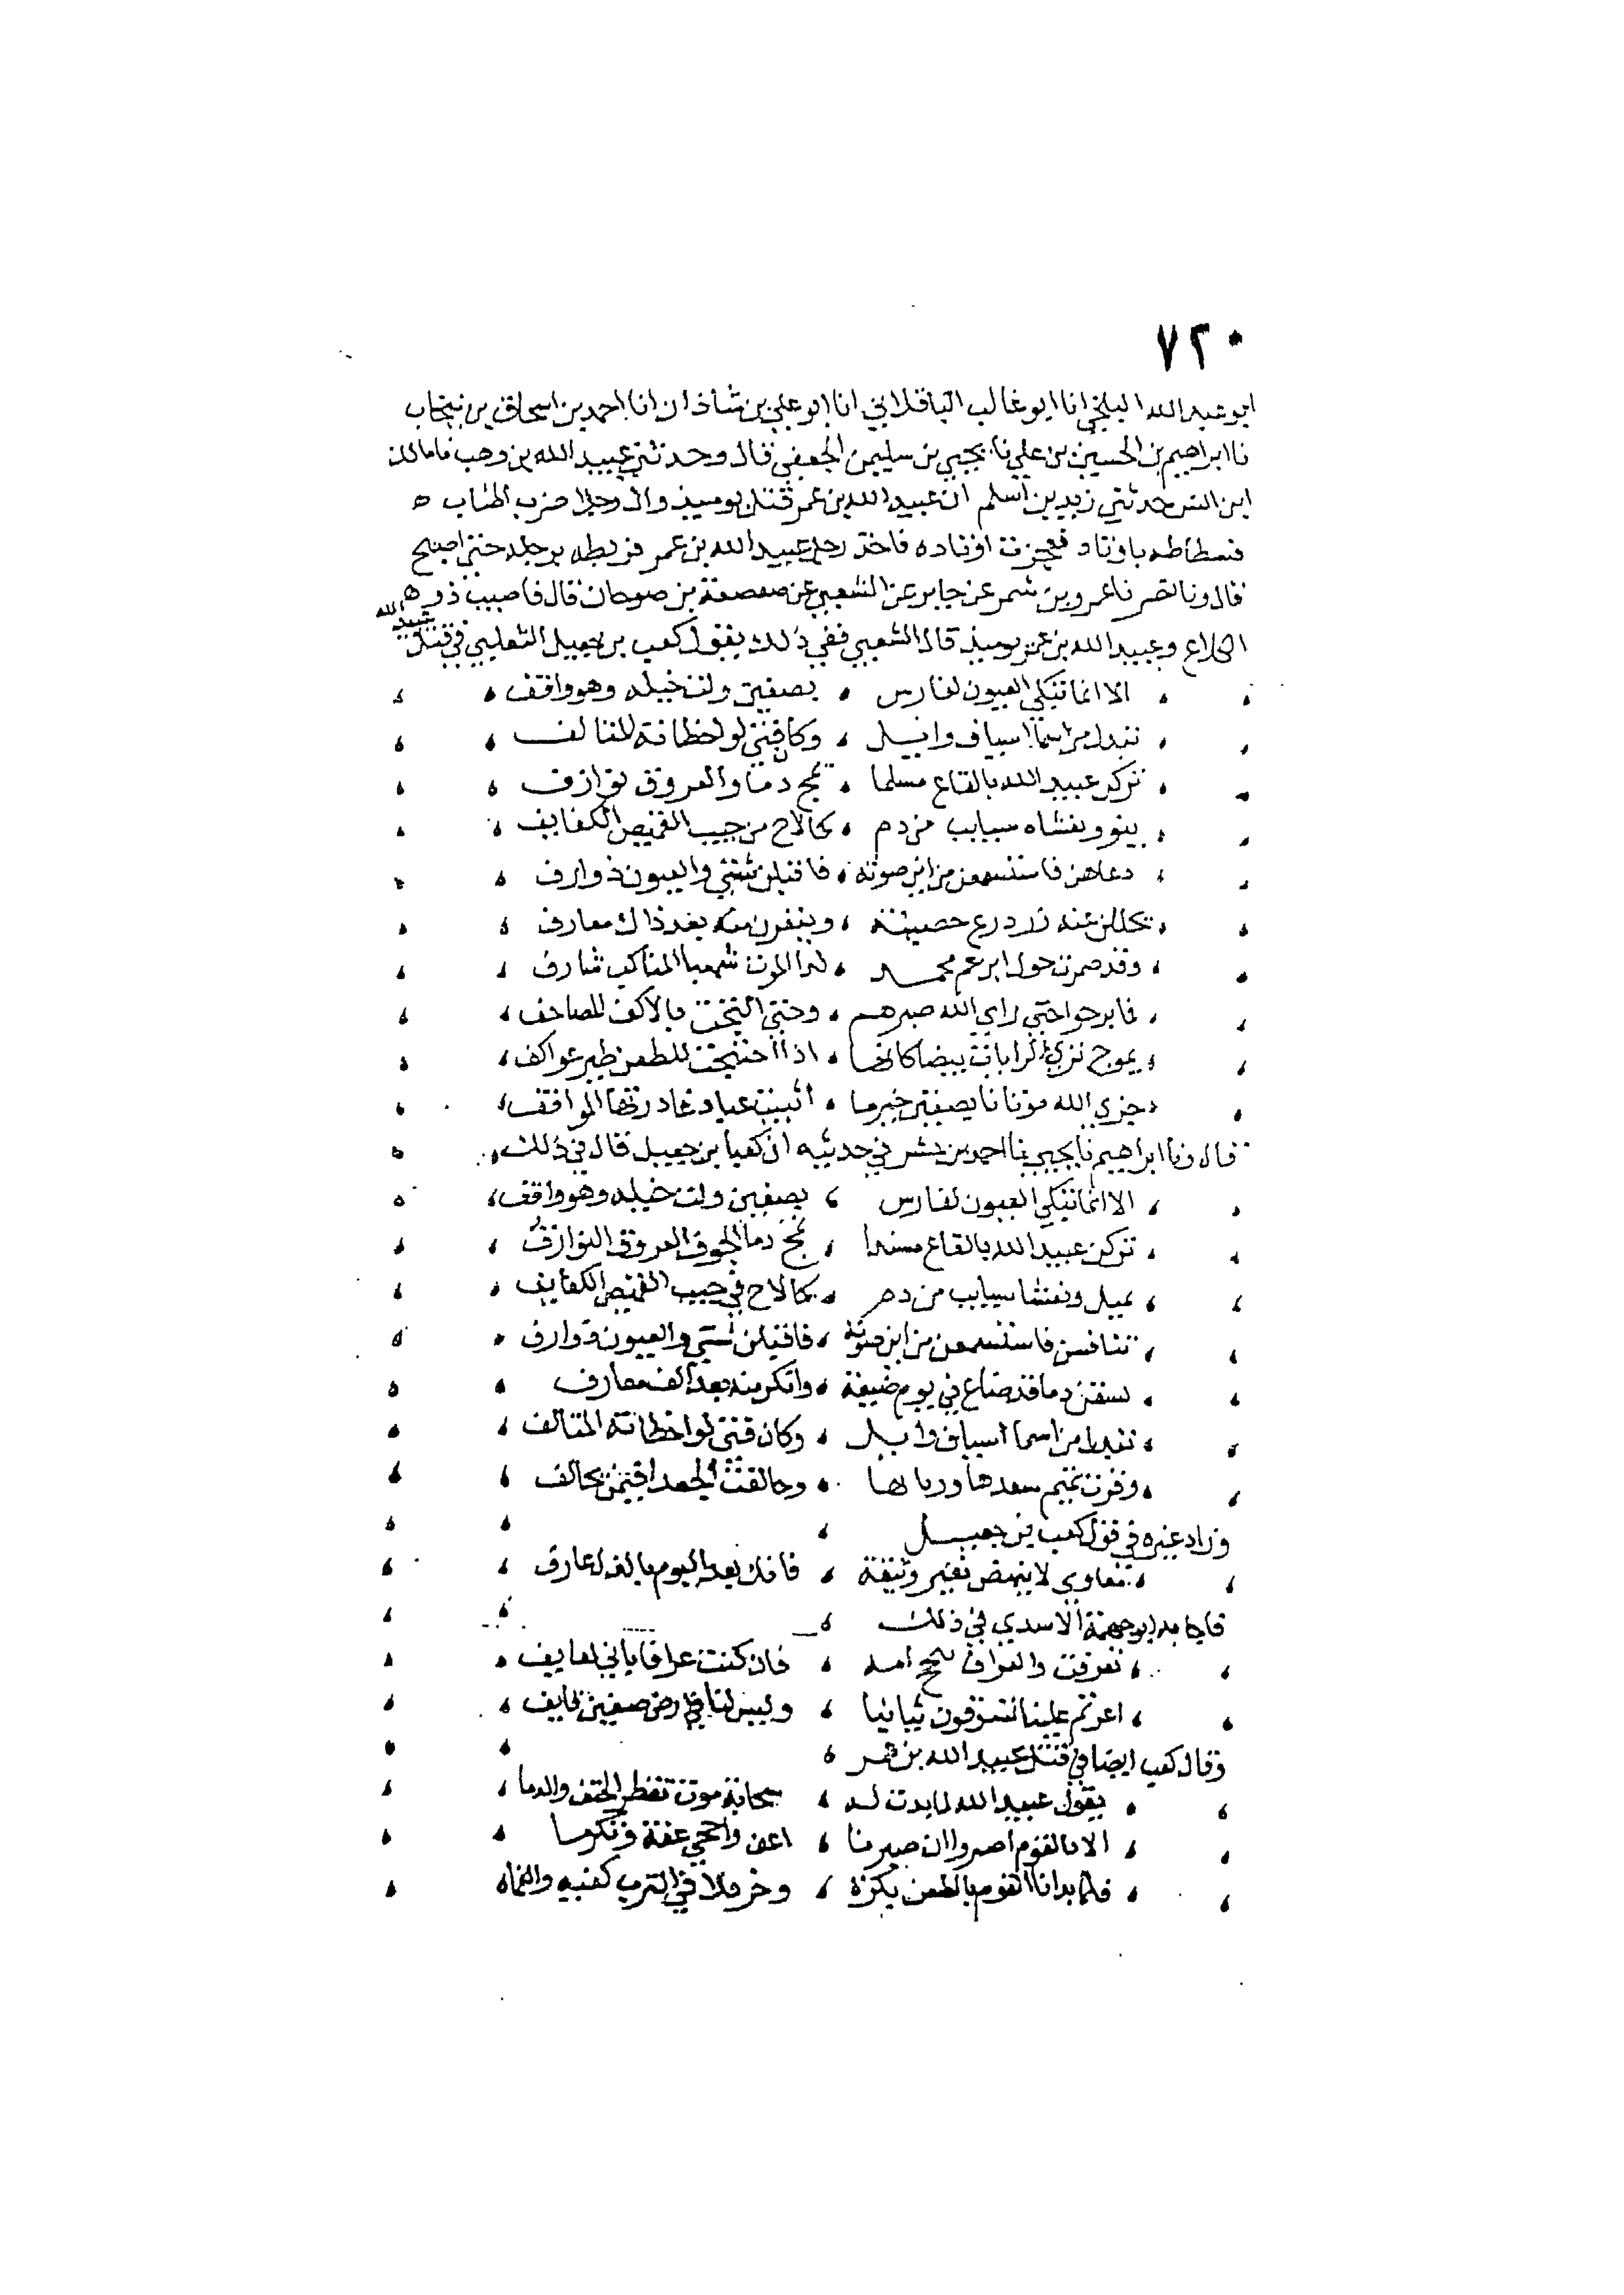 ٧٢٠
ابو عبد الله البلخي انا ابو غالب الباقلاني انا ابو علي بن شاذان انا احمد بن اسحاق بن نيخاب
نا ابراهيم بن الحسين بن علي نا يحيي بن سليمن الجعفي قال وحدثني عبيد الله بن وهب نا مالك
ابن انس حدثني زيد بن اسلم ان عبيد الله بن عمر قتل يوميذ وان رجلا ضرب اطناب
فسطاطه باوتاد فعجزت اوتاده فاخذ رجل عبيد الله بن عمر فربطه برجله حتي اصبح
قال ونا نصر نا عمرو بن شمر عن جابر عن الشعبي عن صعصعة بن صوحان قال فاصيب ذو
الكلاع وعبيد الله بن عمر يوميذ قال الشعبي ففي ذلك يقول كعب بن جعيل التغلبي في قتل عبيد الله
الا انما تبكي العيون لفارس ، بصفين ولت خيله وهو واقف ،
تبدل من اسما اسياف وايل ، وكان فتي لو اخطاته المتالف ،
تركن عبيد الله بالقاع مسلما ، تمج دما والعروق نوازف
ينوو ويغشاه سبايب من دم ، كما لاح من جيب القميص الكفايف ،
دعاهن فاستسمعن من اين صوته ، فاقبلن شتي والعيون ذوارف
يحللن عنه زر درع حصينة ، وينفرن منه بعد ذاك معارف
وقد صبرت حول ابن عم محمد ، لدا الموت شهبا المناكب شارف ،
فما برحوا حتي راي الله صبرهم ، وحتي اتيحت بالاكف المصاحف ،
يموج تري الرايات بيضا كانها ، اذا اجتنحت للطعن طير عواكف ،
جزي الله موتانا بصفين خير ما ، اثيب عباد غادرتها المواقف ،
قال ونا ابراهيم نا يحيي نا احمد بن بشر في حديثه ان كعبا بن جعيل قال في ذلك
الا انما تبكي العيون لفارس ، بصفين ولت خيله وهو واقف ،
تركن عبيد الله بالقاع مسندا ، تمج دما الجوف العروق النوازف ،
يميل ويغشا سبايب من دم ، كما لاح في جيب القميص الكفايف ،
تنافسن فاستسمعن من اين صوته ، فاقبلن شتي والعيون ذوارف
يسفن دما قد ضاع في يوم ضيعة ، وانكر منه بعد الف معارف
تبدل من اسما اسياف وايل ، وكان فتي لو اخطاته المتالف ،
وفرت تميم سعدها وربابها ، وحالفت الجعدا فيمن يحالف ،
وزاد غيره في قول كعب بن جعيل
معاوي لا ينهض بغير وثيقة ، فانك بعد اليوم بالذل عارف ،
فاجابه ابو جهمة الاسدي في ذلك
تعرفت والعراف تمج امه ، فان كنت عرافا فاني لعايف
اعزتم علينا تسرقون ثيابنا ، وليس لنا في ارض صفين قايف ،
وقال كعب ايضا في قتل عبيد الله بن عمر
يقول عبيد الله لما بدت له ، سحابة موت تقطر الحتف والدما ،
الا يا لقوم اصبروا ان صبرنا ، اعف واحجي عفة وتكرما
فلما بدانا القوم بالطعن بكرة ، وخر فلا في الترب كفيه والفماه